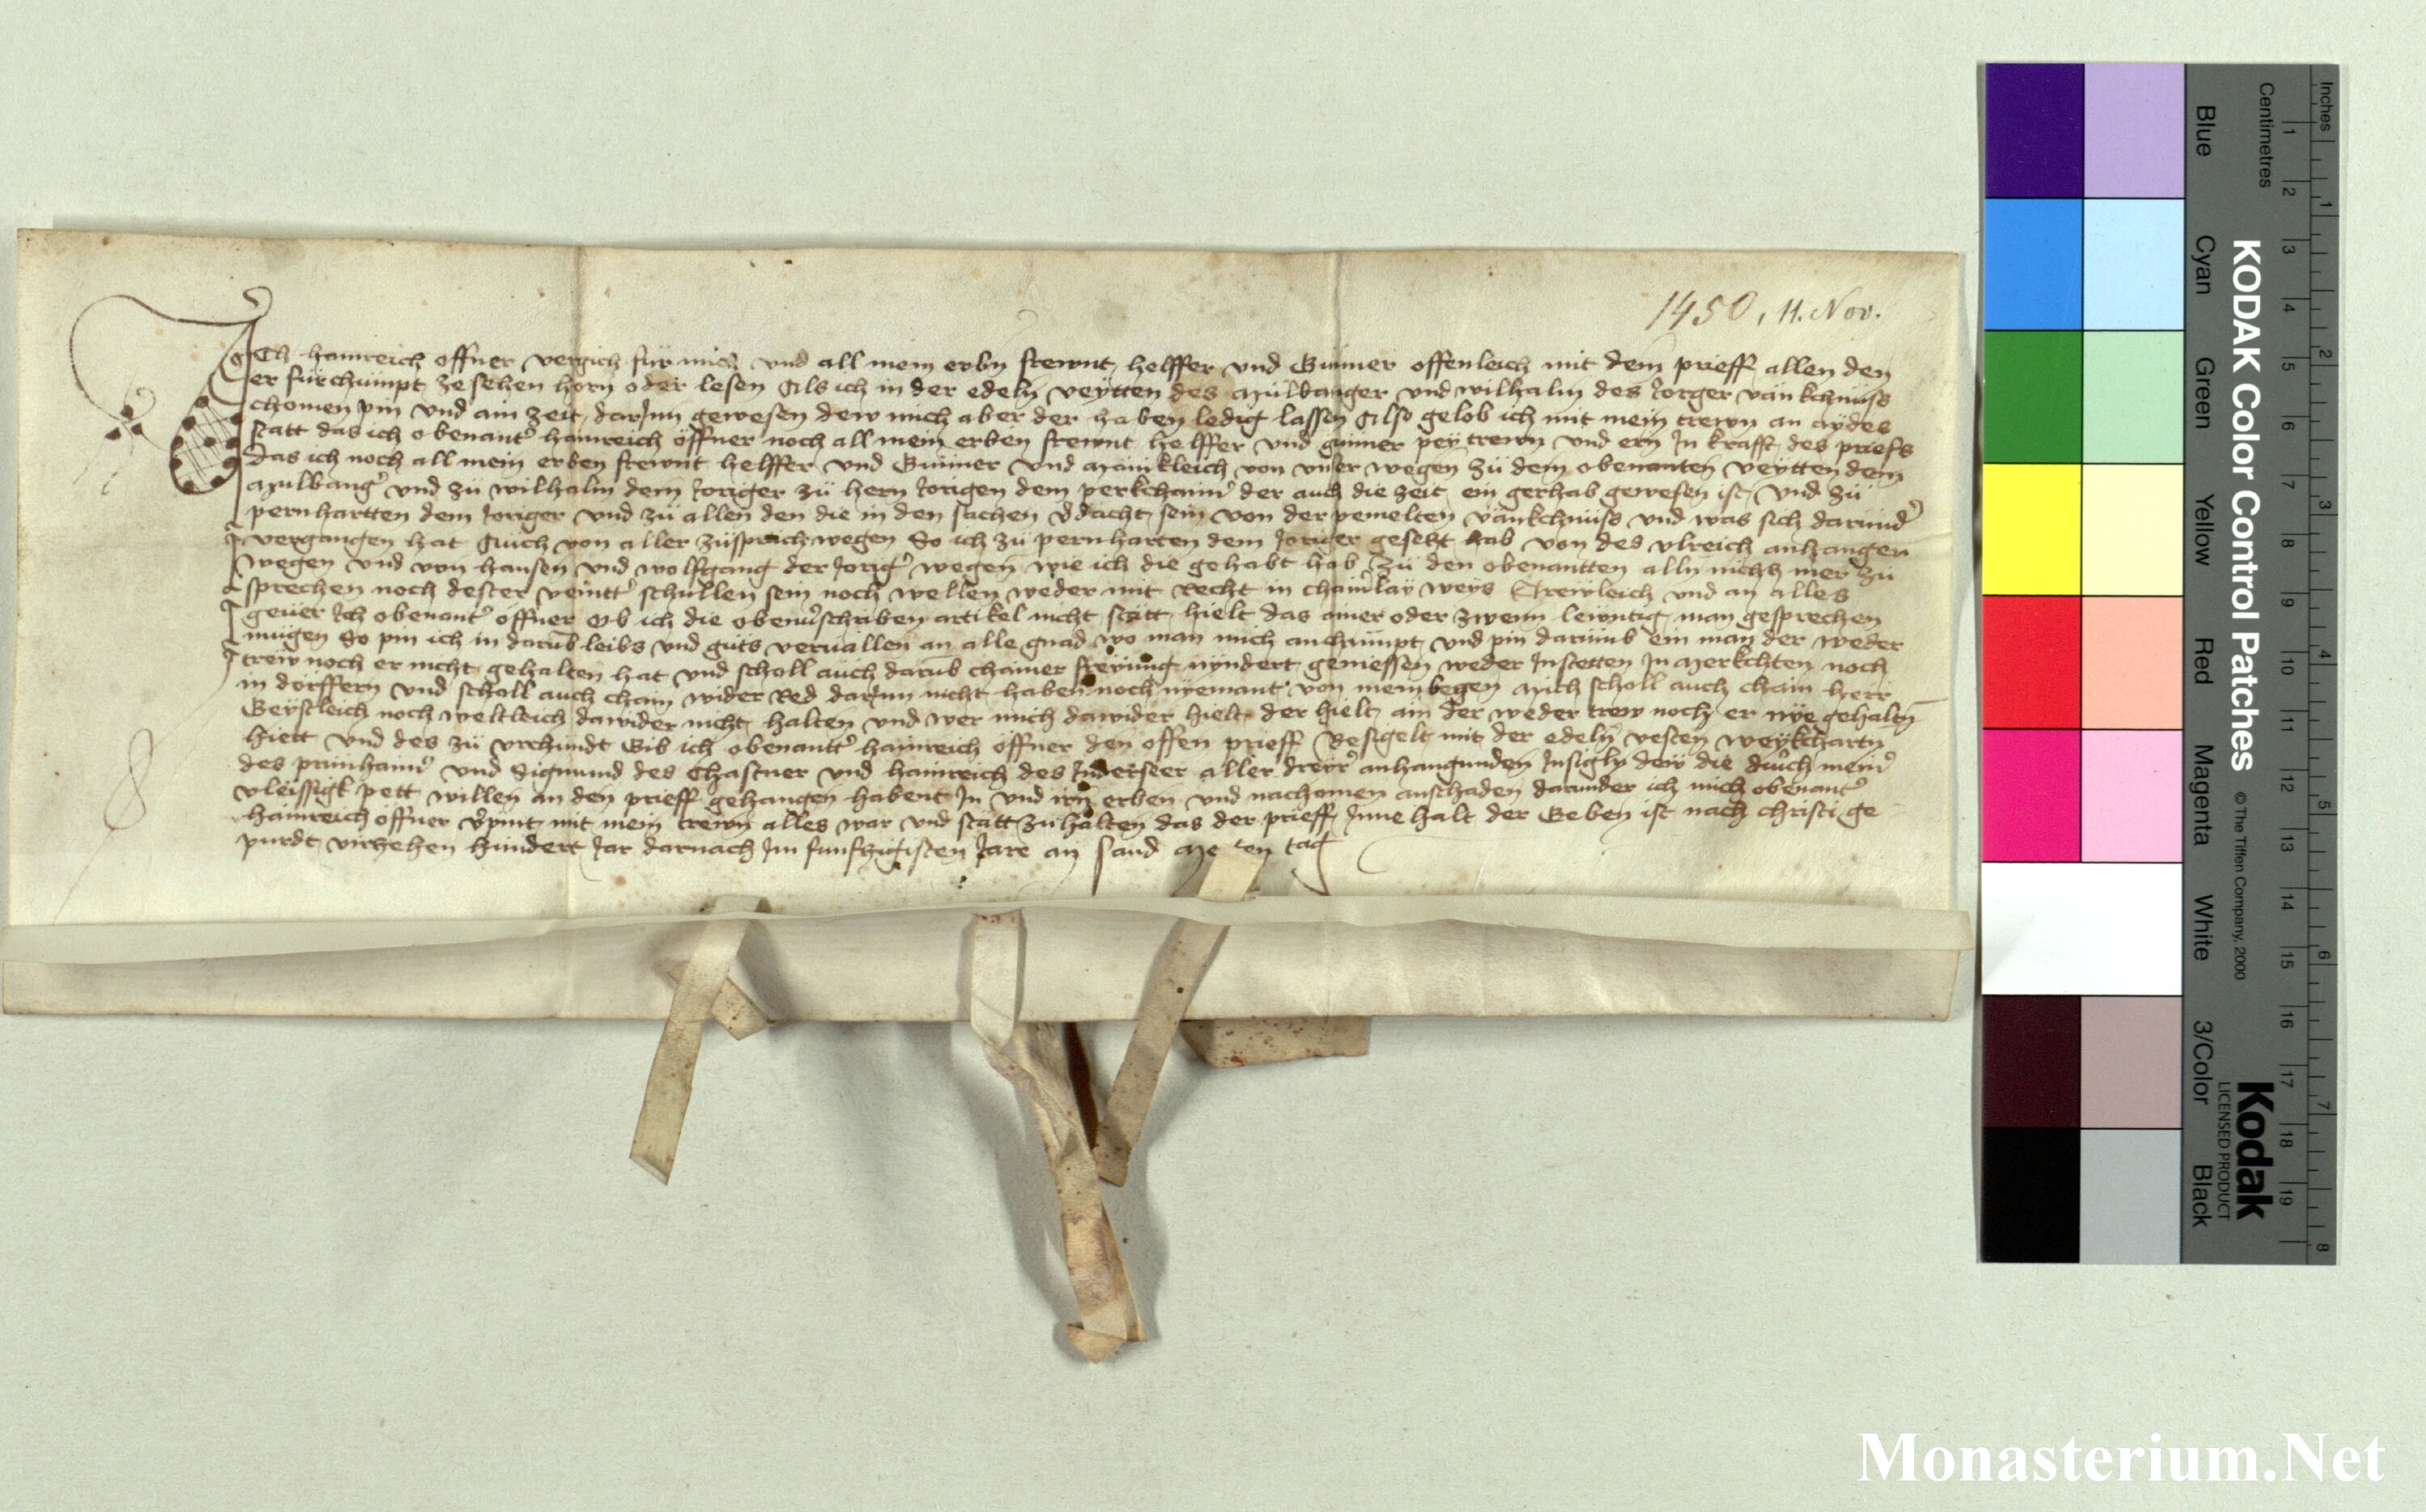 1450, 11. Nov.
ICh hainreich offner vergich fur mich vnd all mein erbn frewnt helffer vnd Gunner offenleich mit dem prieff allen den
er furchumpt ze sehen horn oder lesen Als ich in der edeln veytten des Mulbanger vnd wilhalm des Jorger vankchnuss
chomen pin vnd ain zeit darJnn gewesen dew mich aber der haben ledig lassen Also gelob ich mit mein trewn an aydes
statt das ich obenant hainreich offner noch all mein erben frewnt helffer vnd gunner pey trewn vnd ern Jn krafft des priefs
das ich noch all mein erben frewnt helffer vnd Gunner vnd Mänikleich von vnser wegen zu dem obenanten veytten dem
Mulbang vnd zu wilhalm dem Joriger zu hern Jorigen dem perkchaim der auch die zeit ein gerhab gewesen ist vnd zu
pernhartten dem Joriger vnd zu allen den die in den sachen vdacht sein von der vemelten vankchnuss vnd was sich darund
vergangen hat Auch von aller zusprach wegen So ich zu pernharten dem Joriger geseczt hab von des vlreich anhanger
wegen vnd von hansen vnd wolfgang der Jorig wegen wie ich die gehabt hab zu den obenantten alln nichts mer zu
sprechen noch dester veintt schullen sein noch wellen weder mit Recht in chainlay weys Trewleich vnd an alles
geuer Ich obenant offner Ob ich die obenuschriben artikel nicht statt hielt das ainer oder zwenn lewntig man gesprechen
mugen So pin ich in darub leibs vnd guts veruallen an alle gnad wo man mich anchumpt vnd pin darumb ein man der weder
trew noch er nicht gehalten hat vnd scholl auch darub chainer freyung nyndert geniessen weder Jn stetten Jn Merkchten noch
in dorffern vnd scholl auch chain wider Red darJnn nicht haben noch nyemant von mein wegen Mich scholl auch chain herr
Geystleich noch weltleich dawider nicht halten vnd wer mich dawider hielt der hielt ain der weder trew noch er nye gehaltn
hiett vnd des zu vrchundt Gib ich obenantt hainreich offner den offen prieff Besigelt mit der edeln vesten weykchartn
des painhaim vnd Sigmund des Chastner vnd hainreich des Jnderseer aller dreyr anhangunden Jnsigln dew die durch mein
vleissigk pett willen an den prieff gehangen habent Jn vnd irn erben vnd nachomen anschaden darunder ich mich obenant
hainreich offner vpint mit mein trewn alles war vnd statt zu halten das der prieff Jnne halt der Geben ist nach christi ge
purdt virzehen hundert Jar darnach Jm funfzigisten Jare an sand tag
KODAK Color Control Patches
© The Tiffen Company, 2000
Kodak
LICENSED PRODUCT
Inches
1 2 3 4 5 6 7 8
Centimetres
1 2 3 4 5 6 7 8 9 10 11 12 13 14 15 16 17 18 19
Blue Cyan Green Yellow Red Magenta White 3/Color Black
Monasterium.Net